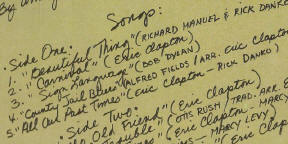 By
Songs:
Side One:
1. "Beautiful Thing" (RICHARD MANUEL & RICK DANKO
2. "Carnival" (Eric Clapton)
3. "Sign Language" (BOB DYLAN)
4. "County Jail Blues" (ALFRED FIELDS / ARR. Eric Clapton
5. "All Our Past Times" (Eric Clapton - RICK DANKO)
Side Two:
Old Friend" (Eric Clapton)
Trouble" (OTIS RUSH / TRAD. ARR. E
(Eric Clapton - MARCY
- MARCY LEVY)
"(Eric Clap